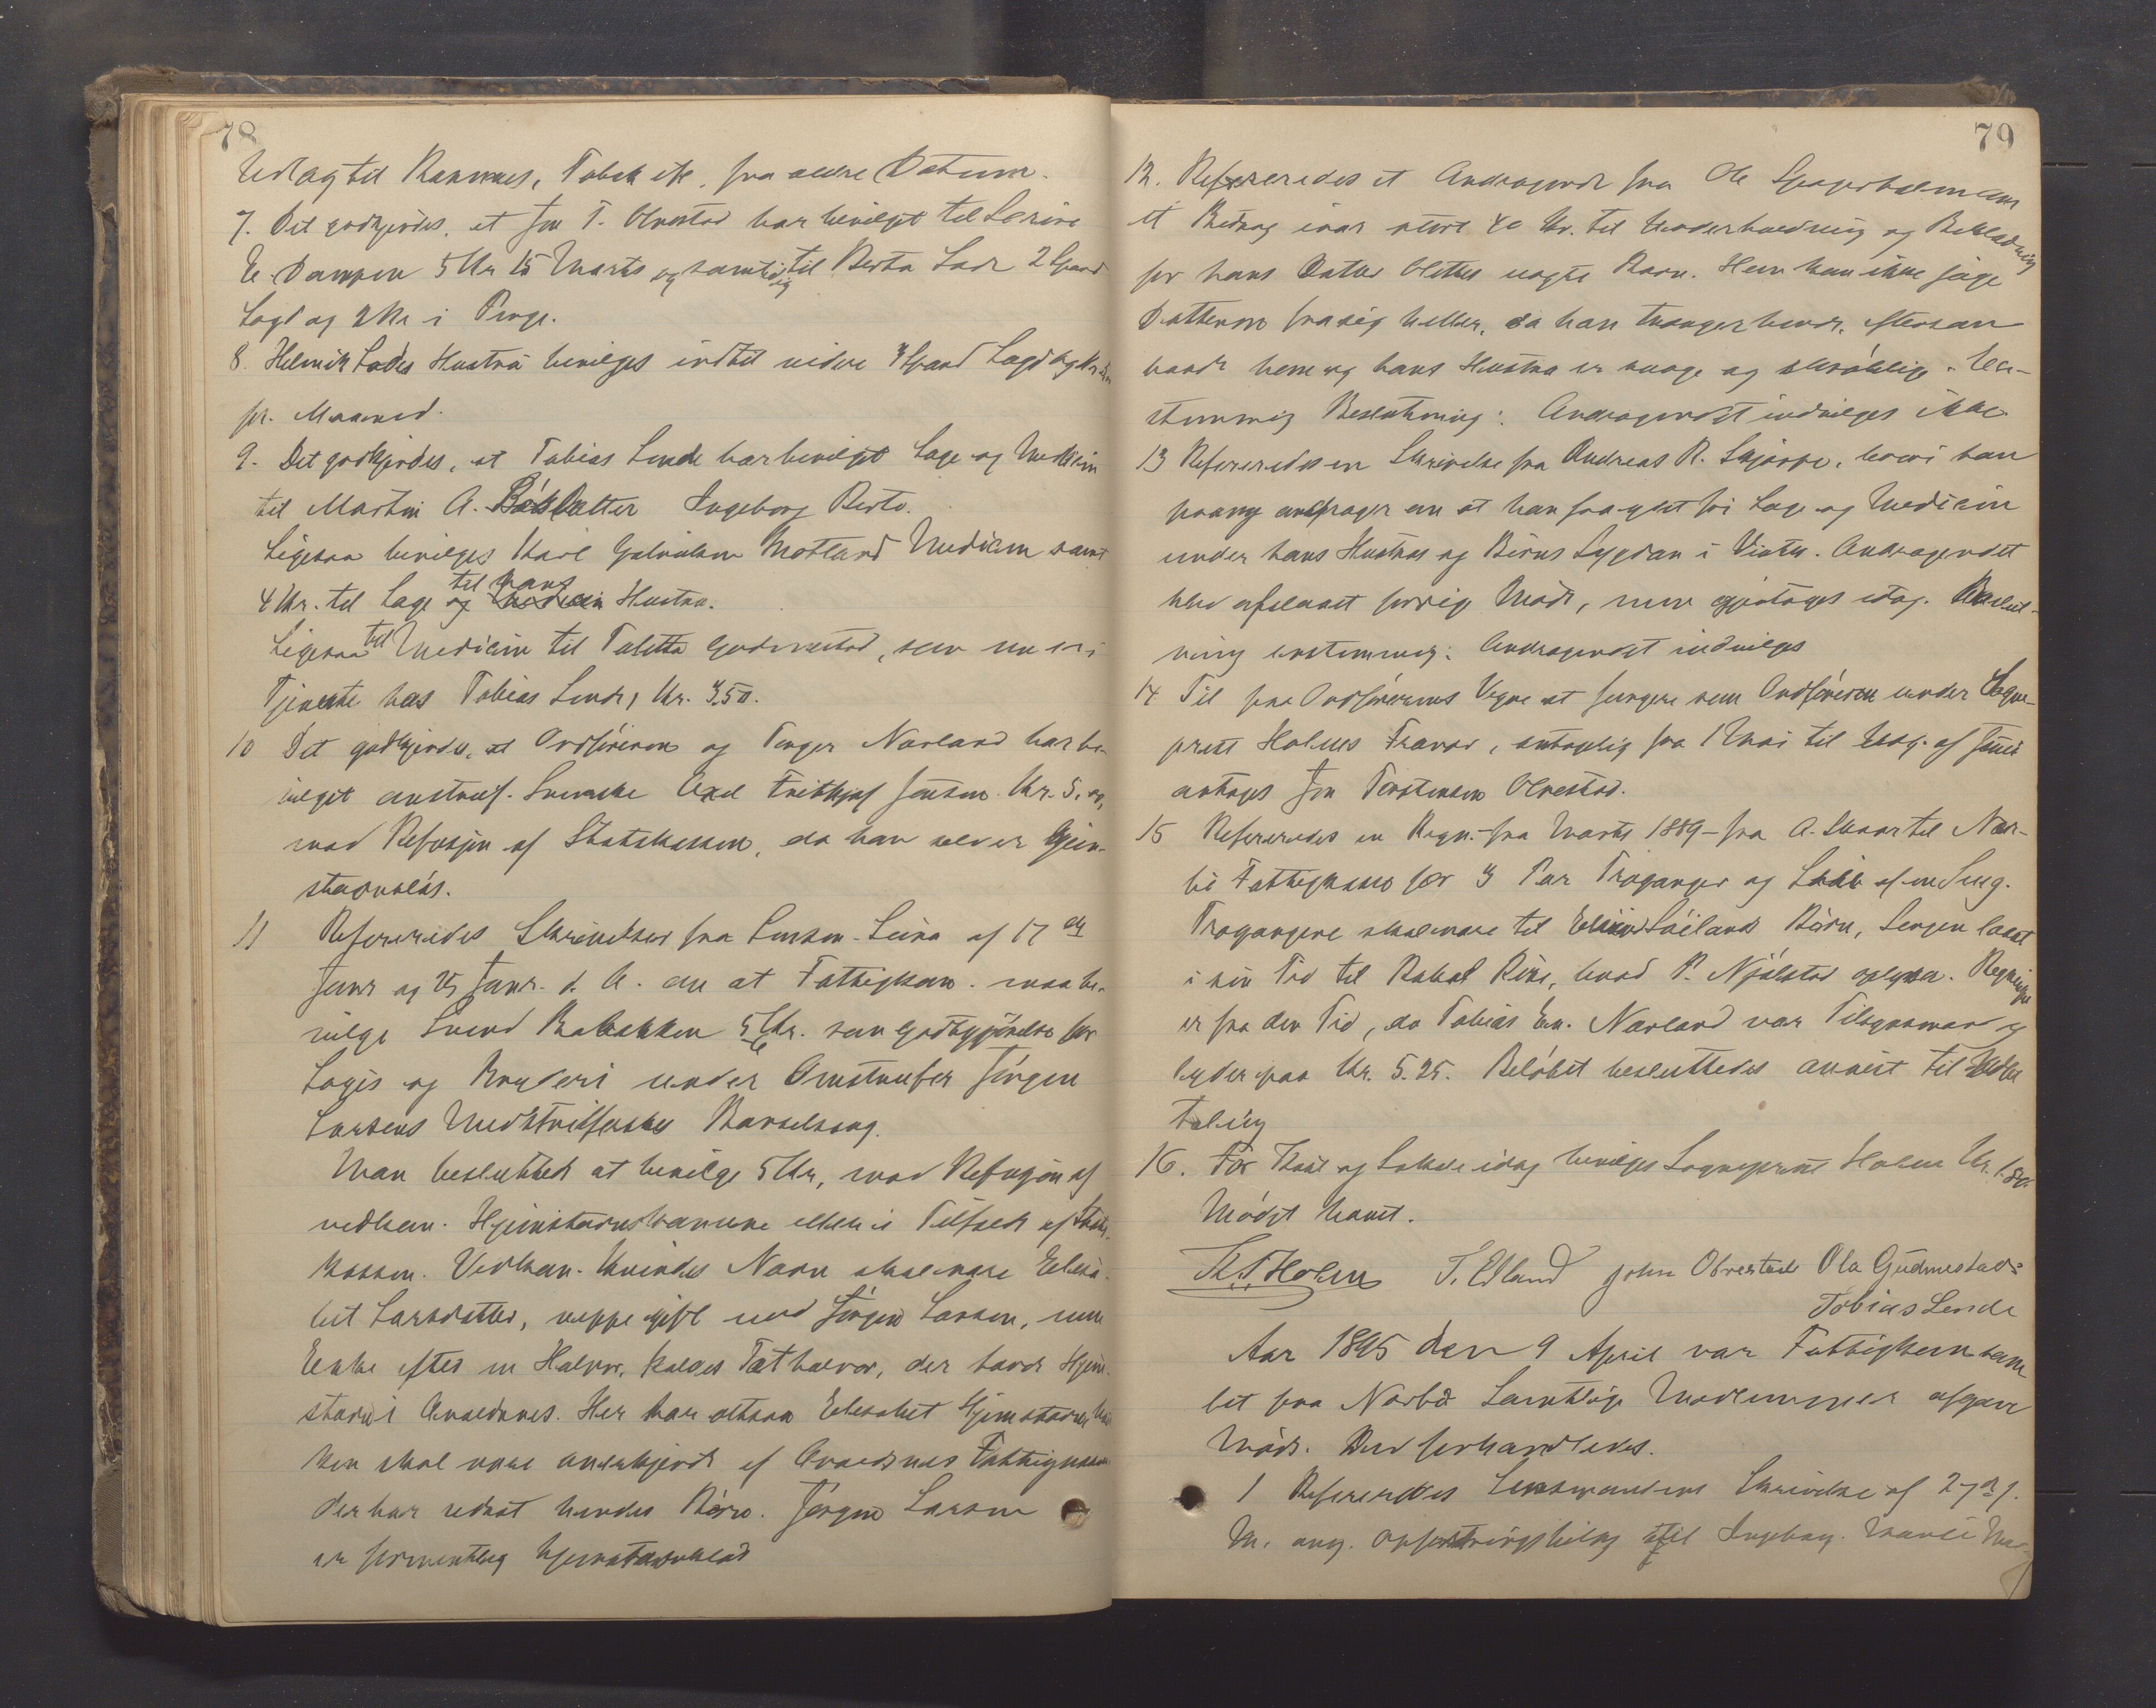 78
Udlag til Tobak etc. fra ældre Datum.
7. Det godkjendes, at Jon T. Obrestad har bevilget til Serine
E. 5 Kr 15 Marts og samtidig til Berta Lode 2 Spand
Bygd og 2 Kr i Penge.
8. Helmik Lodes Hustru bevilges indtil videre Spand Bygd og Kr
pr. Maaned.
9. Det godkjendes, at Tobias Lende har bevilget Læge og Medicin
til Martin A. Datter Ingeborg Berta.
Ligesaa bevilges Karl Motland Medicin samt
4 Kr. til Læge og til hans Hustru.
Ligesaa til Medicin til Taletta Gudmestad, som nu er i
Tjeneste hos Tobias Lende, Kr. 3.50.
10 Det godkjendes, at Ordføreren og Torger Nærland har be-
vilget Svenske Axel Frithjof Jonsen Kr. 5,00,
mod Refusjon af Statskassen, da han selv er hjem-
stavnsløs.
11 Refereredes Skrivelser fra af 17 de
Janr og 25 Janr. d. A. om at Fattigkom. maa be-
vilge Svend 5 Kr. som Godtgjørelse for
Logis og under Omstreifer Jørgen
Larsens Barselseng.
Man besluttede at bevilge 5 Kr, mod Refusjon af
vedkom. Hjemstavnskommune eller i Tilfælde af Stats-
kassen. Vedkom. Kvindes Navn skal være Elisa-
bet Larsdatter, neppe gift med Jørgen Larsen, men
Enke efter en Halvor, kaldes Tæthalvor, der havde Hjem-
stavn i Avaldsnes. Her har altsaa Elisabet Hjemstavn.
Hun skal være anerkjendt af Avaldsnes Fattigkom
der har hendes Børn. Jørgen Larsen
er formentlig hjemstavnsløs
79
12. Refereredes et Andragende fra Ole om
et Bidrag stort 40 Kr. til Underholdning og Beklædning
for hans Datter uægte Barn. Han kan ikke jage
Datteren fra sig heller, da han trænger hende, eftersom
baade han og hans Hustru er svage og skrøbelige. En-
stemmig Beslutning: Andragendet indvilges ikke.
13 Refereredes en Skrivelse fra Andreas R. Skjærpe, hvori han
paany andrager om at han faa frit for Læge og Medicin
under hans Hustrus og Børns Sygdom i Vinter. Andragendet
blev afslaaet forrige Møde, men gjentages idag. Beslut-
ning enstemmig: Andragendet indvilges
14 Til paa Ordførerens Vegne at fungere som Ordfører under Sogne-
prest Holmes Fravær, antagelig fra 1 Mai til af Juni
antages Jon Torstensen Obrestad.
15 Refereredes en Regn. fra Marts 1889 – fra A. Skaar til Nær-
bø Fattigkom for 3 Par Træganger og af en Seng.
Trægangene skal være til Søilands Børn, Sengen laant
i sin Tid til Rakel Rise, hvad P. Njølstad oplyser. Regningen
er fra den Tid, da Tobias En. Nærland var Tilsynsmand og
lyder paa Kr. 5.25. Beløbet besluttedes anvist til Udbe-
taling
16. For Hold og Lokale idag bevilges Sogneprest Holme Kr. 1,80.
Mødet hævet.
Holme T. Edland John Obrestad Ola Gudmestad
Tobias Lende
Aar 1895 den 9 April var Fattigkom sam
let paa Nærbø Samtlige Medlemmer afgav
Møde. Der forhandledes.
1 Refereredes Lensmandens Skrivelse af 27 de f.
M. ang. Opfostringsbidrag til Ingeborg